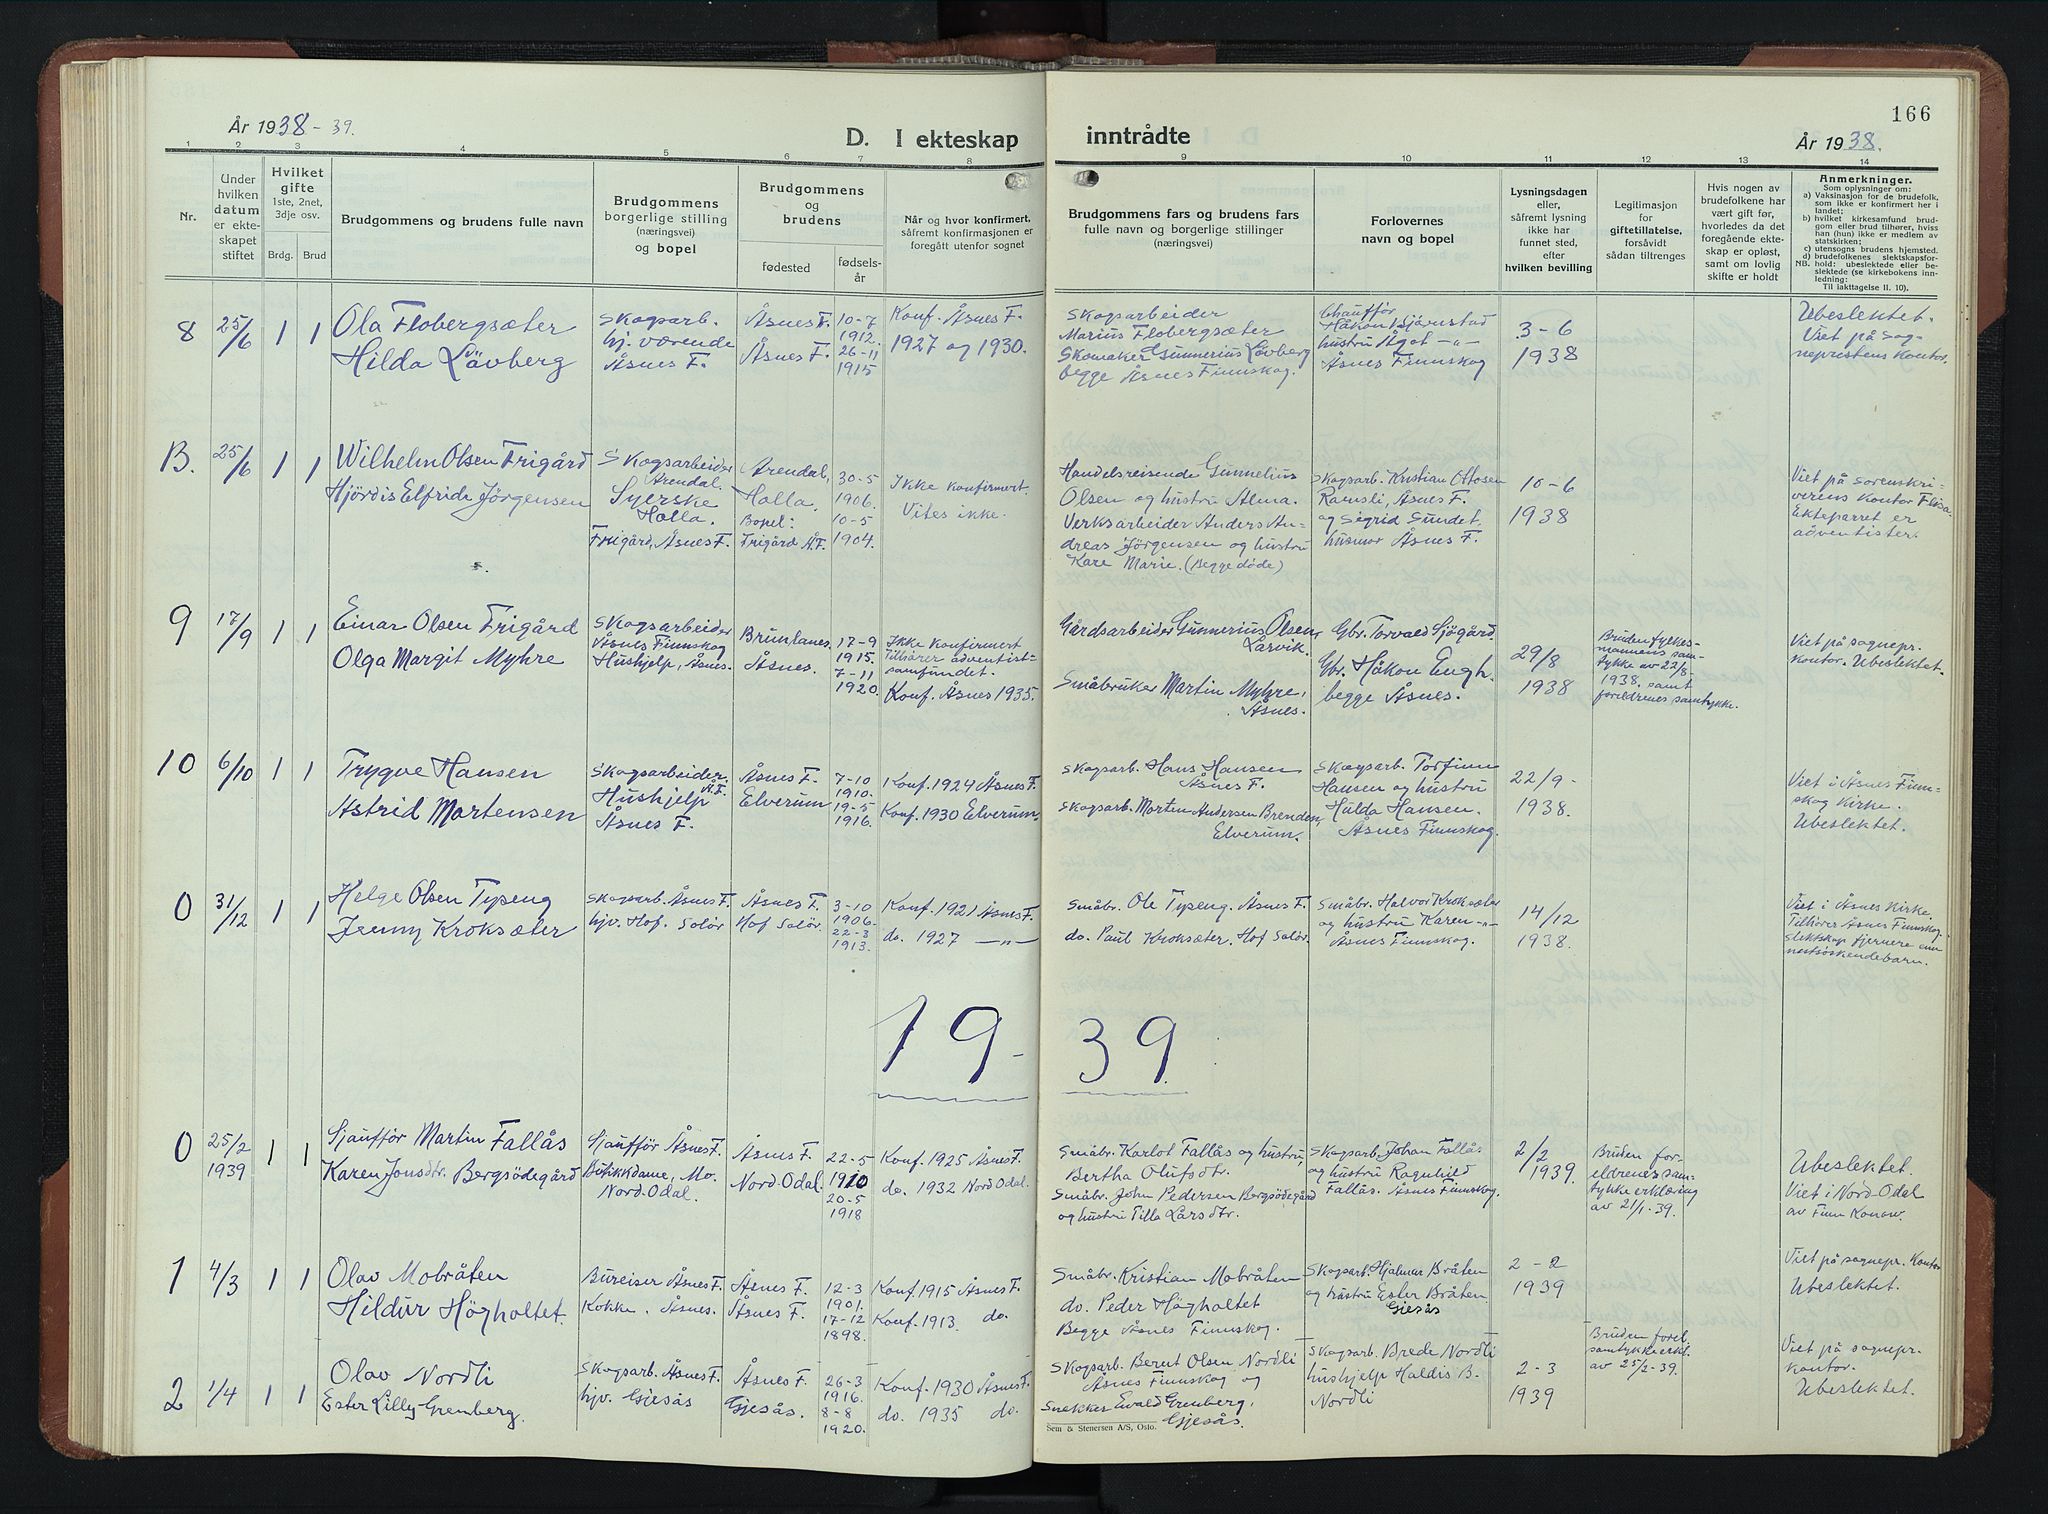 År 1938-39.
D. I ekteskap
inntrådte
166
År 1938.
1 2 3 4 5 6 7 8 9 10 11 12 13 14
Nr.
Under
hvilken
datum
er ekte-
skapet
stiftet
Hvilket
gifte
1ste, 2net,
3dje osv.
Brdg.
Brud
Brudgommens og brudens fulle navn
Brudgommens
borgerlige stilling
(næringsvei)
og bopel
Brudgommens
og
brudens
fødested
fødsels-
år
Når og hvor konfirmert,
såfremt konfirmasjonen er
foregått utenfor sognet
Brudgommens fars og brudens fars
fulle navn og borgerlige stillinger
(næringsvei)
Forlovernes
navn og bopel
Lysningsdagen
eller,
såfremt lysning
ikke har
funnet sted,
efter
hvilken bevilling
Legitimasjon
for
giftetillatelse,
forsåvidt
sådan tiltrenges
Hvis nogen av
brudefolkene har
vært gift før,
hvorledes da det
foregående ekte-
skap er opløst,
samt om lovlig
skifte er holdt
Anmerkninger.
Som oplysninger om:
a) Vaksinasjon for de brudefolk,
som ikke er konfirmert her i
landet;
b) hvilket kirkesamfund brud-
gom eller brud tilhører, hviss
han (hun) ikke er medlem av
statskirken;
c) utensogns brudens hjemsted.
d) brudefolkenes slektskapsfor-
NB. hold: ubeslektede eller be-
slektede (se kirkebokens inn-
ledning;
Til iakttagelse II. 10).
8 25/6 1 1
Ola Flobergsæter
Hilda Lövberg
Skogsarb.
hj. værende
Åsnes F.
Åsnes F.
Åsnes F.
10-7
1912.
26-11
1915
Konf. Åsnes F.
1927 og 1930.
Skogsarbeider
Marius Flobergsæter
Skomaker Gunnerius Lövberg
begge Åsnes Finnskog.
Chauffør
Håkon Bjørnstad
hustru Ågot -"-
Åsnes Finnskog
3-6
1938
Ubeslektet.
Viet på sog-
neprestens kontor.
B. 25/6 1 1
Wilhelm Olsen Frigård
Hjördis Elfride Jörgensen
Skogsarbeider
Arendal.
Syerske
Holla.
Frigård, Åsnes F.
Arendal,
Holla.
Bopel:
Frigård Å.F.
30-5
1906.
10-5
1904.
Ikke konfirmert.
Vites ikke.
Handelsreisende Gunnelius
Olsen og hustru Alma.
Verksarbeider Anders An-
dreas Jörgensen og hustru
Kare Marie. (Begge døde)
Skogsarb. Kristian Ottosen
Ramsli, Åsnes F.
og Sigrid Sundet.
husmor Åsnes F.
10-6
1938
Viet på sorenskri-
verens kontor Flisa.
Ekteparret er
adventister.
9 17/9 1 1
Einar Olsen Frigård
Olga Margit Myhre
Skogsarbeider
Åsnes Finnskog
Hushjelp, Åsnes.
Brunlanes
Åsnes.
17-9
1915.
7-11
1920.
Ikke konfirmert
Tilhører adventist-
samfundet.
Konf. Åsnes 1935.
Gårdsarbeider Gunnerius Olsen,
Larvik.
Småbruker Martin Myhre,
Åsnes.
Gbr. Torvald Sjögård
Gbr. Håkon Engh.
begge Åsnes.
29/8
1938
Bruden fylkes-
mannens sam-
tykke av 22/8-
1938. samt
foreldrenes samtykke.
Viet på sognepr.
kontor. Ubeslektet.
10 6/10 1 1
Trygve Hansen
Astrid Martensen
Skogsarbeider.
Å.F.
Hushjelp
Åsnes F.
Åsnes F.
Elverum
7-10
1910.
19-5
1916.
Konf. 1924 Åsnes F.
Konf. 1930 Elverum.
Skogsarb. Hans Hansen
Åsnes F.
Skogsarb. Morten Andersen Brenden,
Elverum.
Skogsarb. Torfinn
Hansen og hustru
Hulda Hansen.
Åsnes Finnskog.
22/9-
1938.
Viet i Åsnes Finn-
skog Kirke.
Ubeslektet.
0 31/12 1 1
Helge Olsen Typeng
Jenny Kroksæter
Skogsarb. Åsnes F.
hjv. Hof. Solör
Åsnes F.
Hof Solör.
3-10
1906.
22-3
1913.
Konf. 1921 Åsnes F.
do. 1927 -"-
Småbr. Ole Typeng. Åsnes F.
do. Paul Kroksæter. Hof Solör.
Småbr. Halvor Kroksæter
og hustru Karen -"-
Åsnes Finnskog.
14/12
1938.
Viet i Åsnes Kirke.
Tilhører Åsnes Finnskog.
slektskap fjernere enn
nestsøskendebarn.
19-39
0 25/2 1939 1 1
Sjauffør Martin Fallås
Karen Jonsdtr. Bergsödegård
Sjauffør Åsnes F.
Butikkdame, Mo.
Nord-Odal.
Åsnes F.
Nord-Odal.
22-5
1910
20-5
1918
Konf. 1925 Åsnes F.
do. 1932 Nord Odal.
Småbr. Karlot Fallås og hustru,
Bertha Olufsdtr.
Småbr. John Pedersen Bergsödegård
og hustru Tilla Larsdtr.
Skogsarb. Johan Fallås
og hustru Ragnhild
Fallås. Åsnes Finnskog.
2/2
1939.
Bruden for-
eldrenes sam-
tykke erklæring
av 21/1-39.
Ubeslektet.
Viet i Nord-Odal
av Finn Konow.
1 4/3 1 1
Olav Mobråten
Hildur Högholtet.
Bureiser Åsnes F.
Kokke. Åsnes.
Åsnes F.
Åsnes F.
12-3
1901.
17-12
1898.
Konf. 1915 Åsnes F.
Konf. 1913. do.
Småbr. Kristian Mobråten
do. Peder Högholtet
Begge Åsnes Finnskog.
Skogsarb. Hjalmar Bråten
og hustru Ester Bråten.
Gjesås
2-2
1939
Viet på sognepr. Kontor
Ubeslektet.
2 1/4 1 1
Olav Nordli
Ester Lilly Grenberg.
Skogsarb. Åsnes F.
hjv. Gjesås
Åsnes F.
Gjesås.
26-3
1916.
8-8
1920.
Konf. 1930 Åsnes F.
do. 1935 do.
Skogsarb. Bernt Olsen Nordli
Åsnes Finnskog og
Snekker Ewald Grenberg,
Gjesås.
Skogsarb. Brede Nordli
hushjelp Haldis B-
Nordli
2-3
1939
Bruden forel.
samtykkeerkl.
av 25/2-39.
Viet på sognepr.
kontor.
Ubeslektet.
Sem & Stenersen A/S, Oslo.